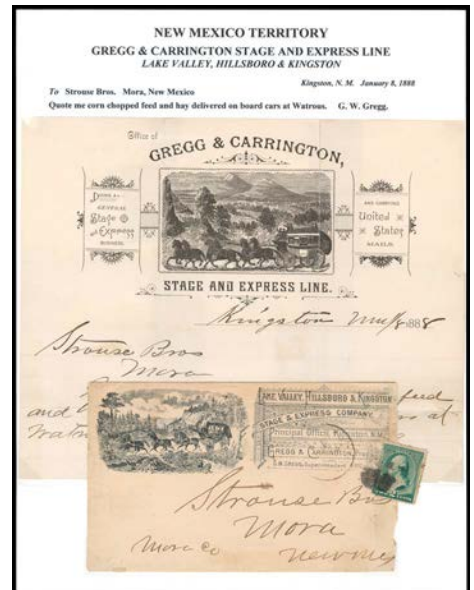 NEW MEXICO TERRITORY
GREGG & CARRINGTON STAGE AND EXPRESS LINE
LAKE VALLEY, HILLSBORO & KINGSTON
Kingston, N. M. January 8, 1888
To Strouse Bros. Mora, New Mexico
Quote me corn chopped feed and hay delivered on board cars at Watrous. G. W. Gregg.
Office of
GREGG & CARRINGTON,
DOING A
GENERAL
Stage
and Express
BUSINESS
AND CARRYING
United
States
MAILS
STAGE AND EXPRESS LINE.
Kingston 1/8 1888
Strouse Bros
Mora
feed
and at
LAKE VALLEY, HILLSBORO & KINGSTON
STAGE & EXPRESS COMPANY.
Principal Office, Kingston, N.M.
GREGG & CARRINGTON,
Strouse Bros
Mora
Mora Co New Mex